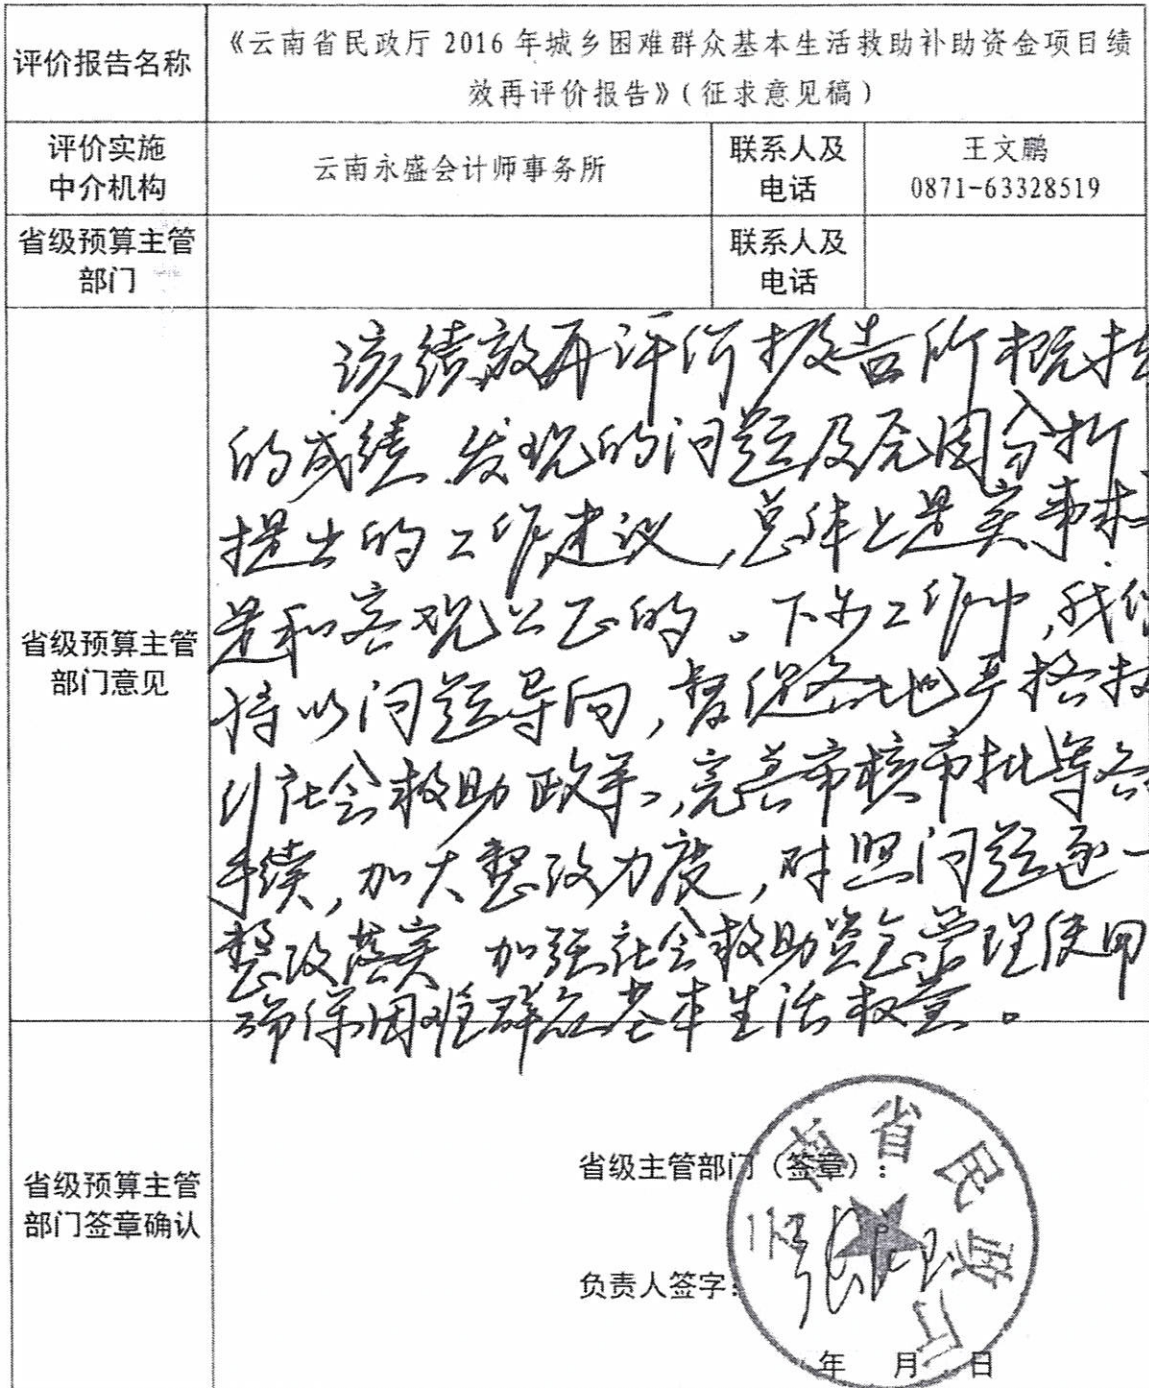 评价报告名称
《云南省民政厅 2016 年城乡困难群众基本生活救助补助资金项目绩
效再评价报告》(征求意见稿)
评价实施
中介机构
云南永盛会计师事务所
联系人及
电话
王文鹏
0871-63328519
省级预算主管
部门
联系人及
电话
省级预算主管
部门意见
该绩效再评价报告所概括
的成绩、发现的问题及原因分析、
提出的工作建议,总体上是实事求
是和客观公正的。下步工作中,我们
将以问题导向,督促各地严格执
行社会救助政策,完善审核审批等各
手续,加大整改力度,对照问题逐一
整改落实,加强社会救助资金管理使用
确保困难群众基本生活权益。
省级预算主管
部门签章确认
省级主管部门(签章):
负责人签字:
年 月 日
省民政厅